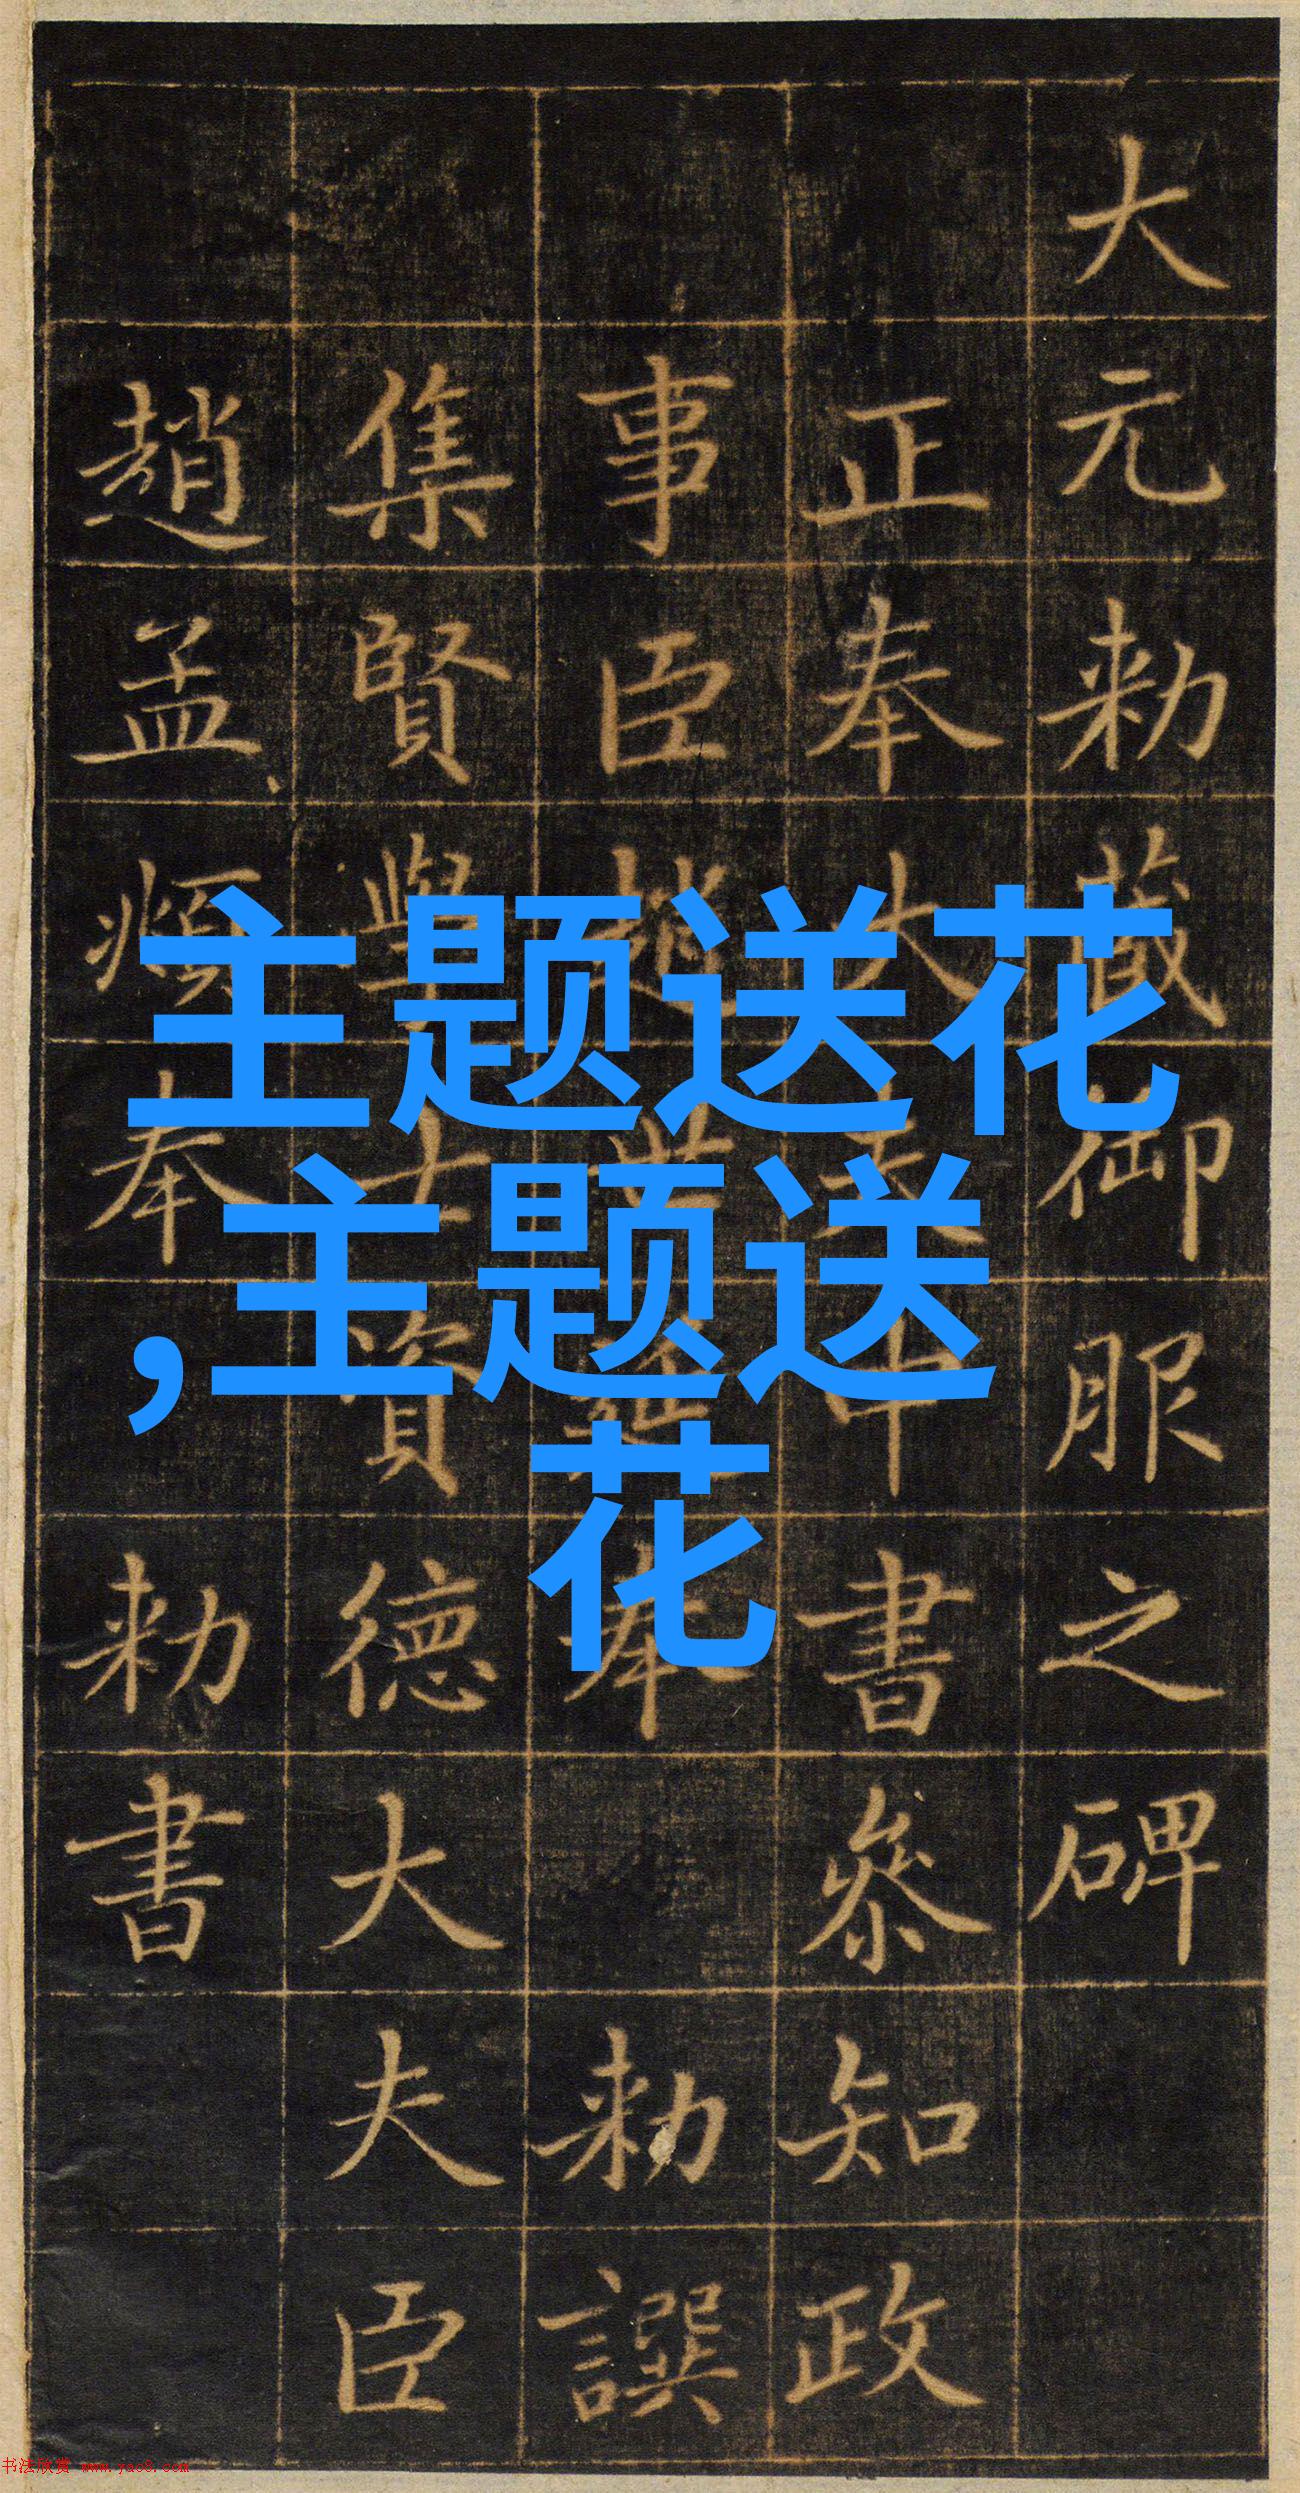 大元勑藏御服之碑
正奉大夫中書叅知政
事臣趙世延奉 勑譔
集賢學士資德大夫臣
趙孟頫奉 勑書
主题送花
,主题送
花
书法欣赏 www.yac8.com